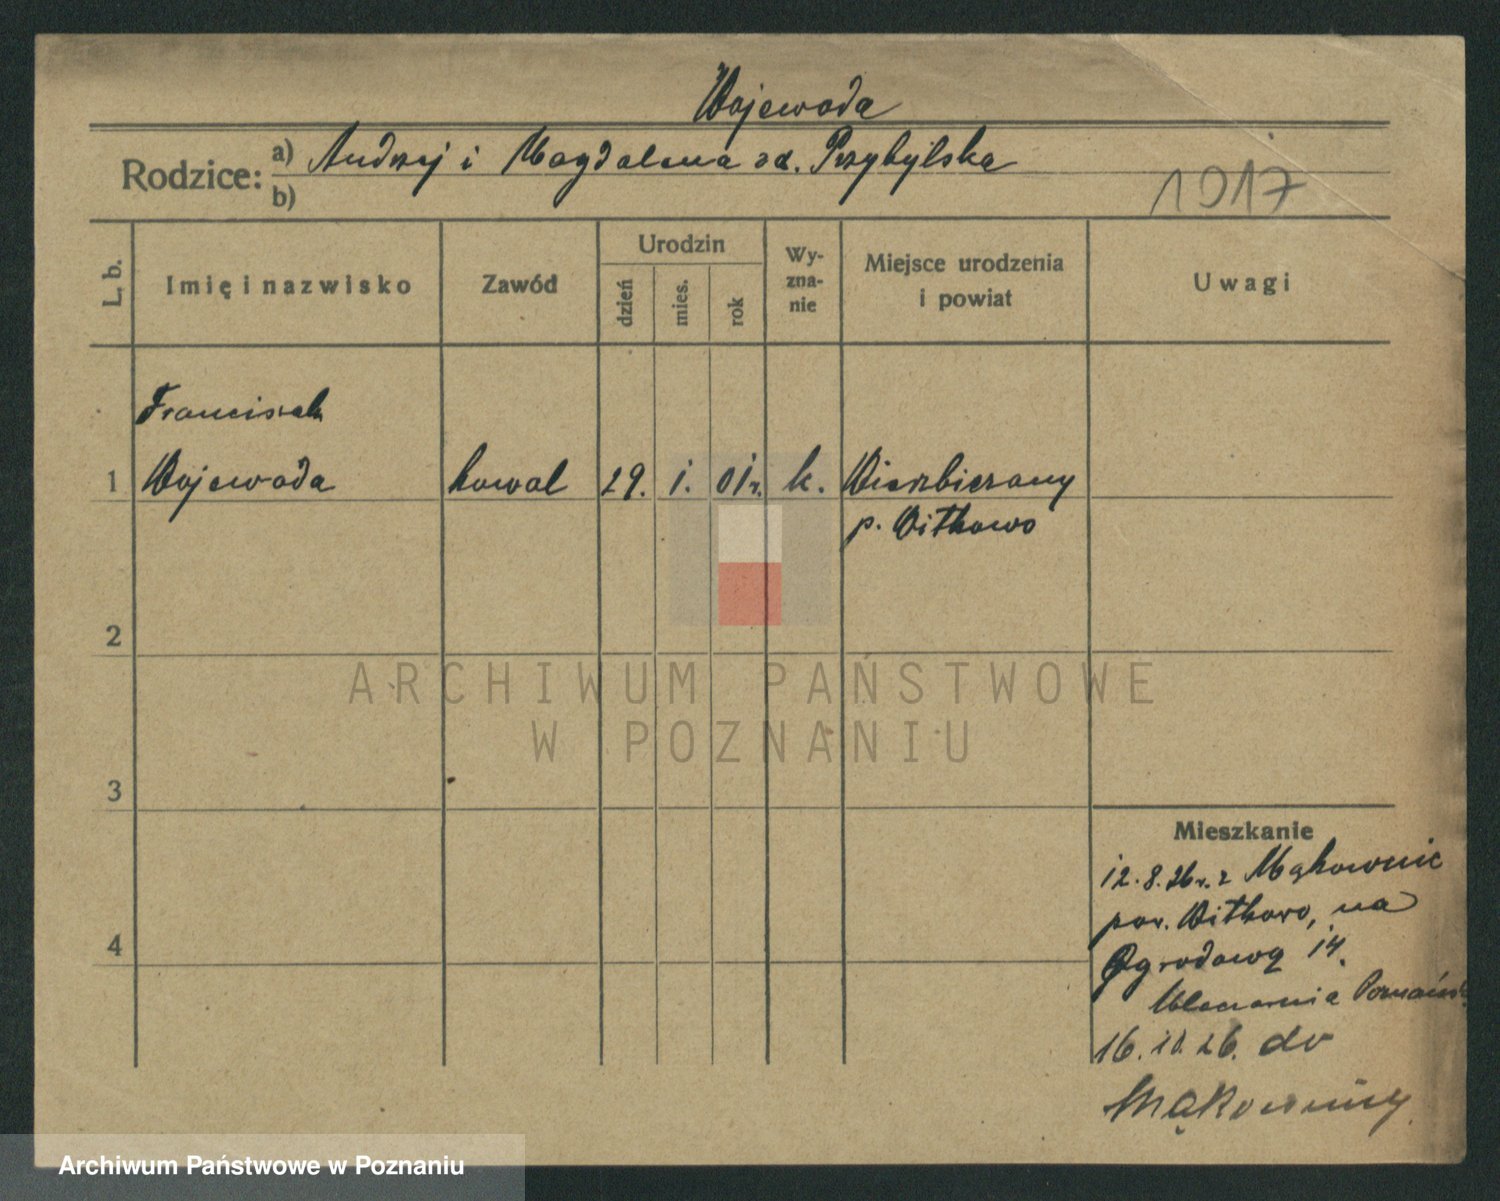 Wojewoda
Rodzice: a) Andrzej i Magdalena zd. Przybylska
b)
1917
L. b.
Imię i nazwisko
Zawód
Urodzin
dzień
mies.
rok
Wy-
zna-
nie
Miejsce urodzenia
i powiat
Uwagi
Franciszek
1 Wojewoda kowal 29. 1. 01r. k. Wierzbiczany
p. Witkowo
2
ARCHIWUM PAŃSTWOWE
W POZNANIU
3
Mieszkanie
12.8.26r. z Mąkownic
pow. Witkowo, na
4
Ogrodową 14.
Mleczarnia
16.10.26. do
Mąkownicy
Archiwum Państwowe w Poznaniu